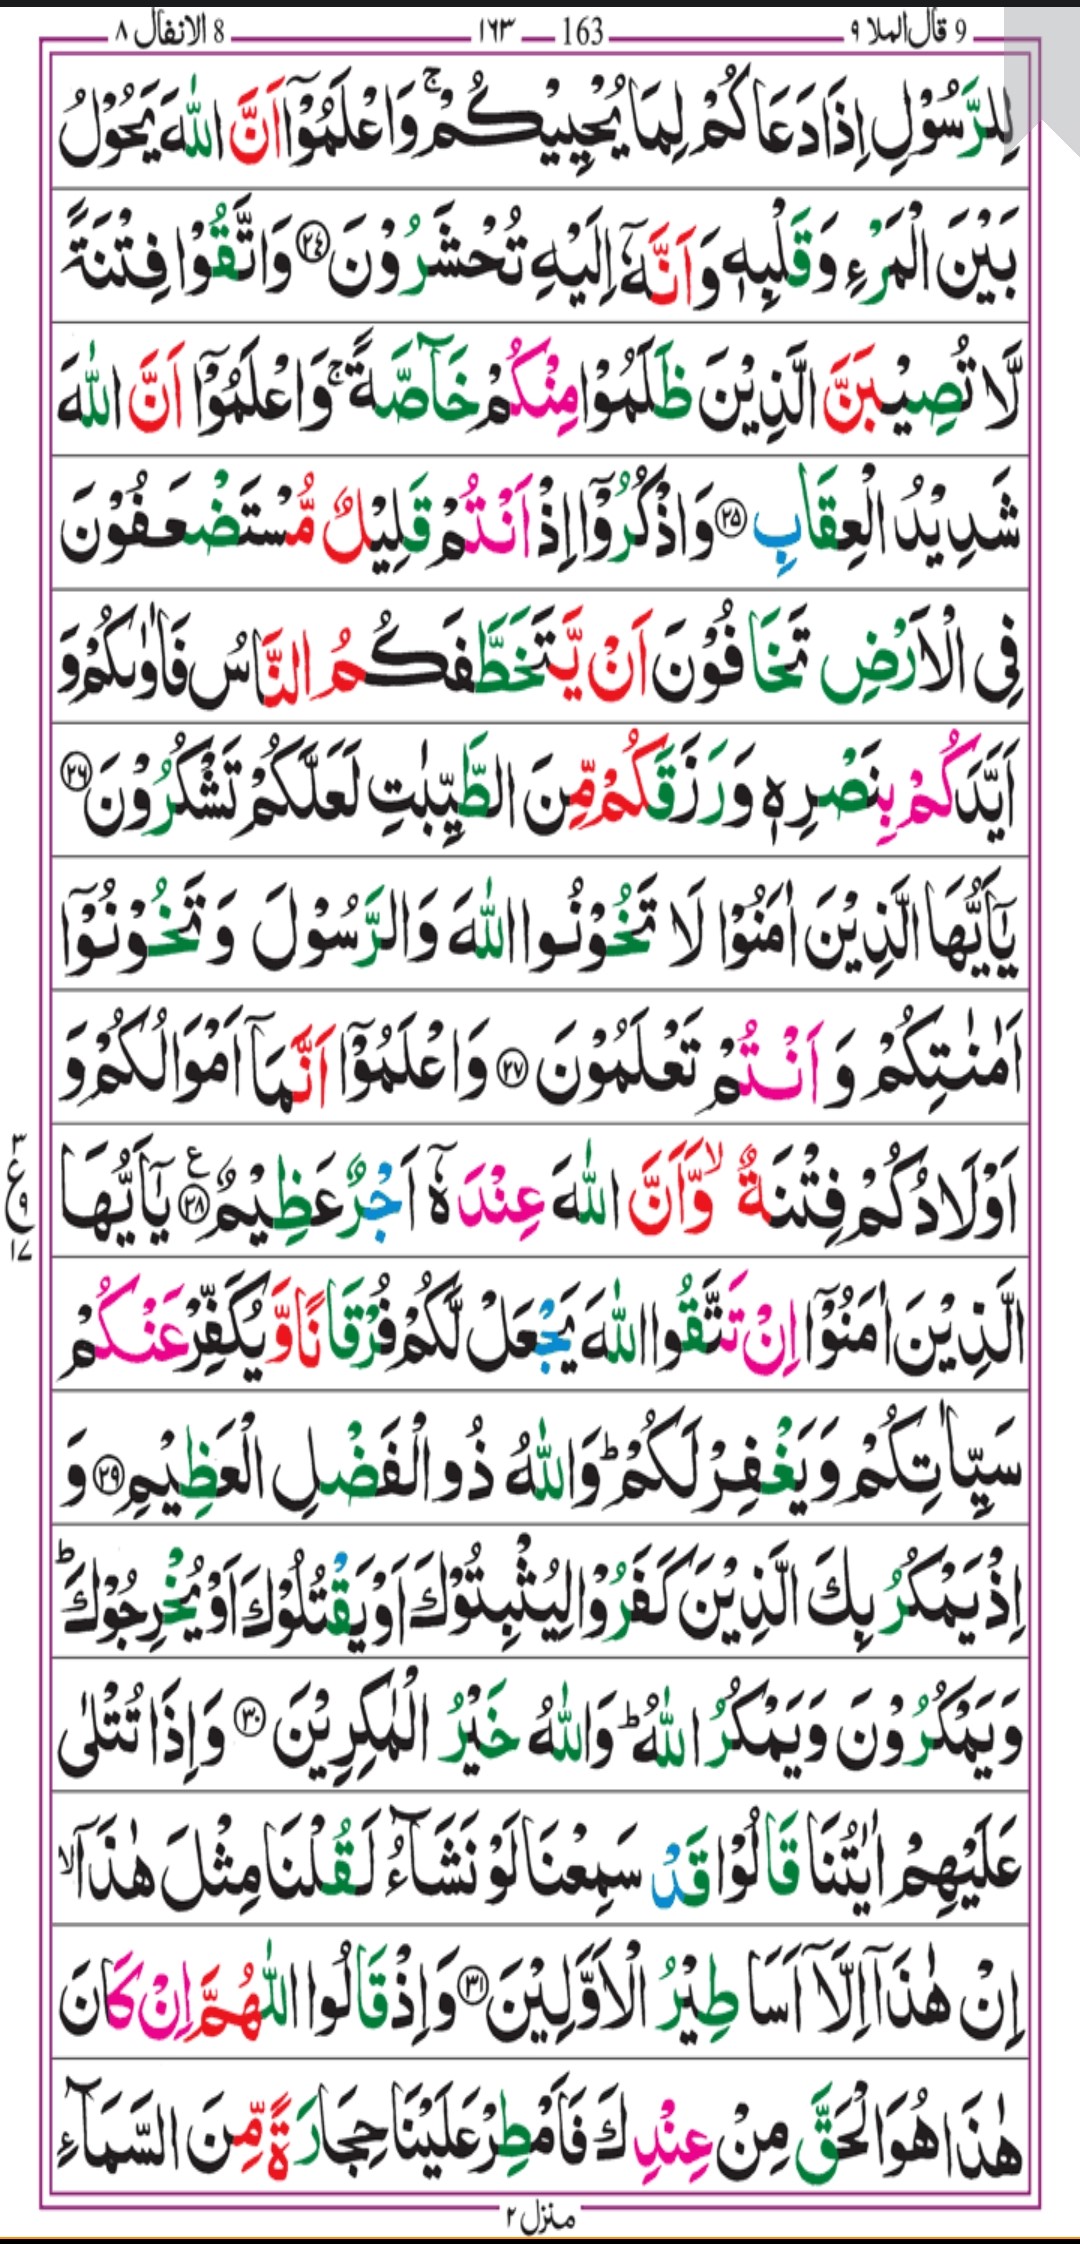 9 قال الملا ٩ 163 ١٦٣ 8 الانفال ٨
لِلرَّسُوْلِ اِذَا دَعَاكُمْ لِمَا يُحْيِيْكُمْ ۚ وَاعْلَمُوْۤا اَنَّ اللّٰهَ يَحُوْلُ
بَيْنَ الْمَرْءِ وَ قَلْبِهٖ وَ اَنَّهٗۤ اِلَيْهِ تُحْشَرُوْنَ ﴿٢٤﴾ وَاتَّقُوْا فِتْنَةً
لَّا تُصِيْبَنَّ الَّذِيْنَ ظَلَمُوْا مِنْكُمْ خَآصَّةً ۚ وَاعْلَمُوْۤا اَنَّ اللّٰهَ
شَدِيْدُ الْعِقَابِ ﴿٢٥﴾ وَاذْكُرُوْۤا اِذْ اَنْتُمْ قَلِيْلٌ مُّسْتَضْعَفُوْنَ
فِى الْاَرْضِ تَخَافُوْنَ اَنْ يَّتَخَطَّفَكُمُ النَّاسُ فَاٰوٰىكُمْ وَ
اَيَّدَكُمْ بِنَصْرِهٖ وَ رَزَقَكُمْ مِّنَ الطَّيِّبٰتِ لَعَلَّكُمْ تَشْكُرُوْنَ ﴿٢٦﴾
يٰۤاَيُّهَا الَّذِيْنَ اٰمَنُوْا لَا تَخُوْنُوا اللّٰهَ وَالرَّسُوْلَ وَ تَخُوْنُوْۤا
اَمٰنٰتِكُمْ وَ اَنْتُمْ تَعْلَمُوْنَ ﴿٢٧﴾ وَاعْلَمُوْۤا اَنَّمَاۤ اَمْوَالُكُمْ وَ
اَوْلَادُكُمْ فِتْنَةٌ ۙ وَّاَنَّ اللّٰهَ عِنْدَهٗۤ اَجْرٌ عَظِيْمٌ ﴿٢٨﴾ ع يٰۤاَيُّهَا
٣ ع ٩ ١٧
الَّذِيْنَ اٰمَنُوْۤا اِنْ تَتَّقُوا اللّٰهَ يَجْعَلْ لَّكُمْ فُرْقَانًا وَّ يُكَفِّرْ عَنْكُمْ
سَيِّاٰتِكُمْ وَ يَغْفِرْ لَكُمْ ؕ وَاللّٰهُ ذُو الْفَضْلِ الْعَظِيْمِ ﴿٢٩﴾ وَ
اِذْ يَمْكُرُ بِكَ الَّذِيْنَ كَفَرُوْا لِيُثْبِتُوْكَ اَوْ يَقْتُلُوْكَ اَوْ يُخْرِجُوْكَ ؕ
وَيَمْكُرُوْنَ وَيَمْكُرُ اللّٰهُ ؕ وَاللّٰهُ خَيْرُ الْمٰكِرِيْنَ ﴿٣٠﴾ وَاِذَا تُتْلٰى
عَلَيْهِمْ اٰيٰتُنَا قَالُوْا قَدْ سَمِعْنَا لَوْ نَشَآءُ لَقُلْنَا مِثْلَ هٰذَاۤ ۙ
اِنْ هٰذَاۤ اِلَّاۤ اَسَاطِيْرُ الْاَوَّلِيْنَ ﴿٣١﴾ وَاِذْ قَالُوا اللّٰهُمَّ اِنْ كَانَ
هٰذَا هُوَ الْحَقَّ مِنْ عِنْدِكَ فَاَمْطِرْ عَلَيْنَا حِجَارَةً مِّنَ السَّمَآءِ
منزل ٢